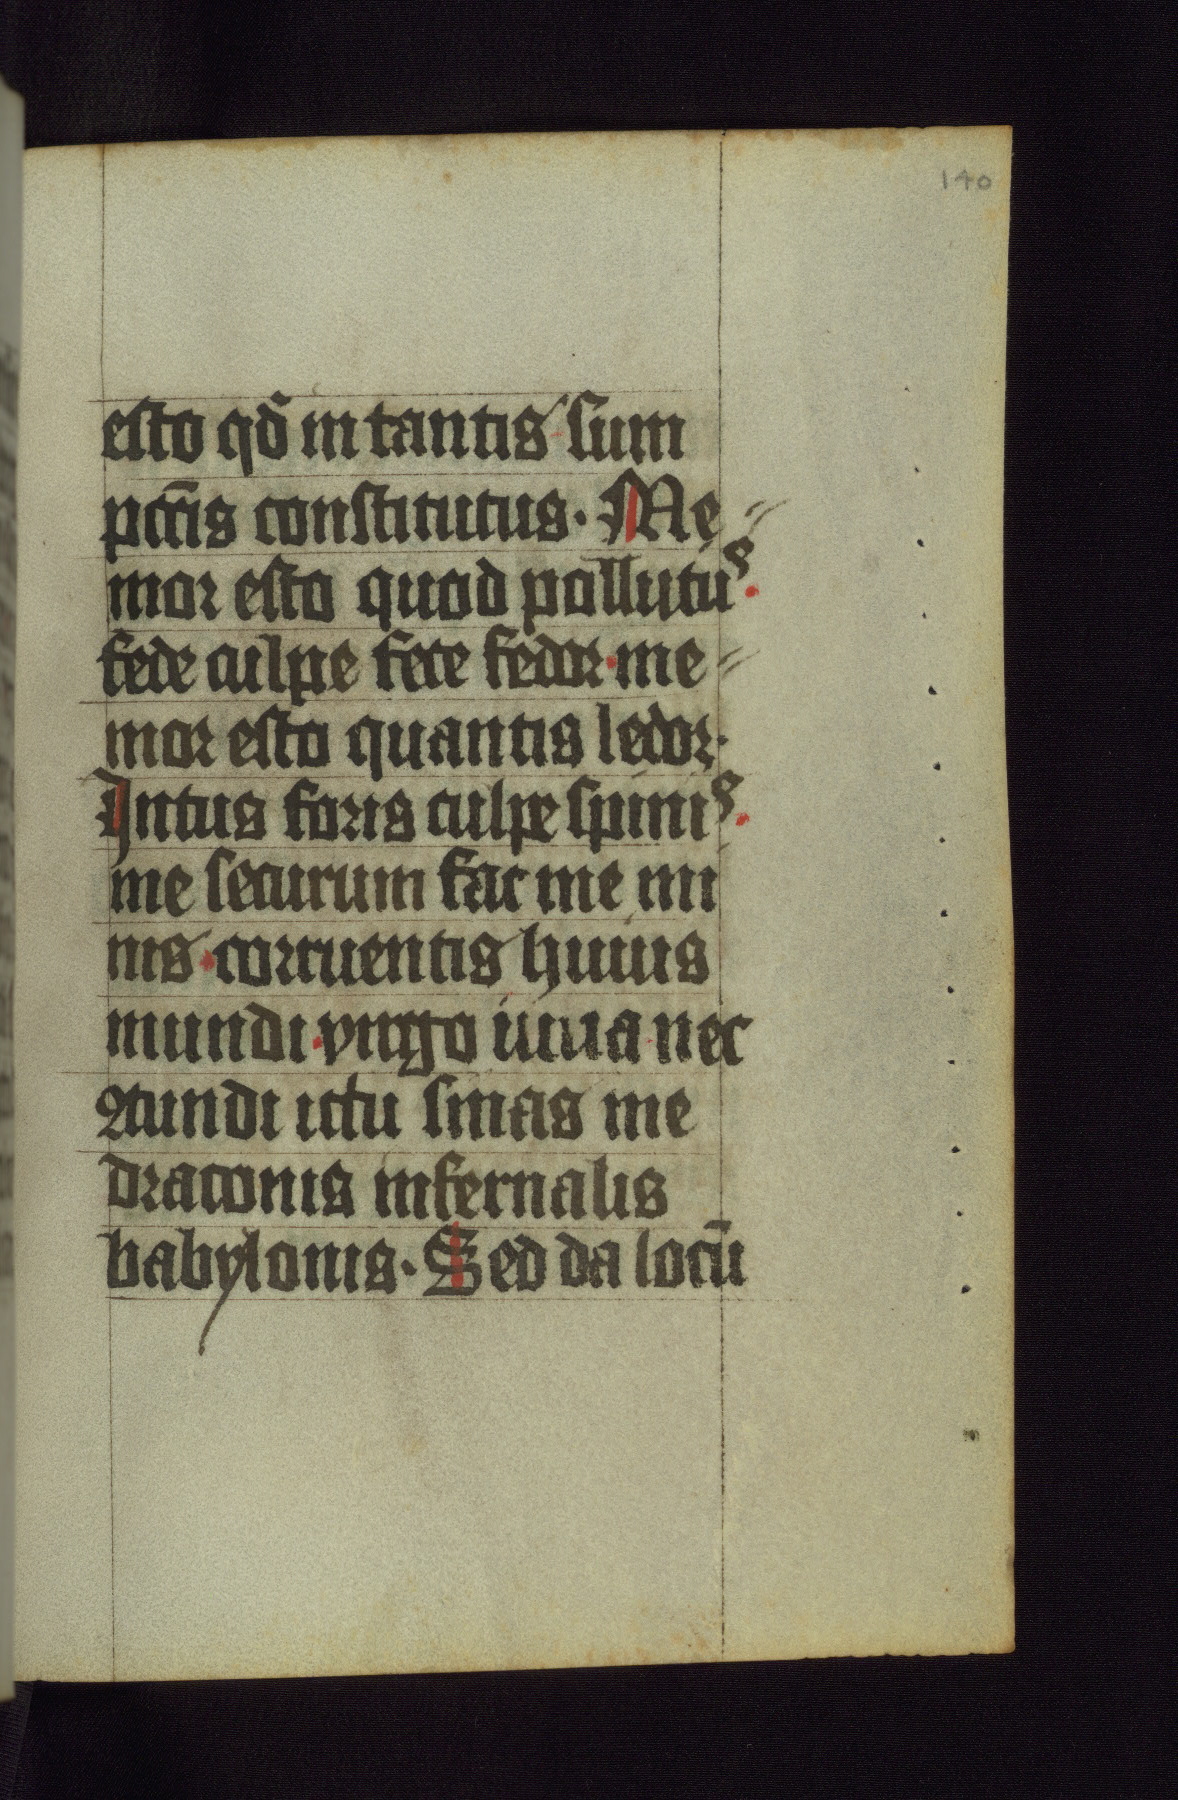 140
esto qd̄ in tantis sum
pctīs constitutus. Me⸗
mor esto quod pollutus.
fede culpe fece fedor. me⸗
mor esto quantis ledor.
Intus foris culpe spinis.
me securum fac me mi
nis. corruentis huius
mundi. virgo iuua nec
rundi ictu sinas me
draconis infernalis
babylonis. Sed da locū